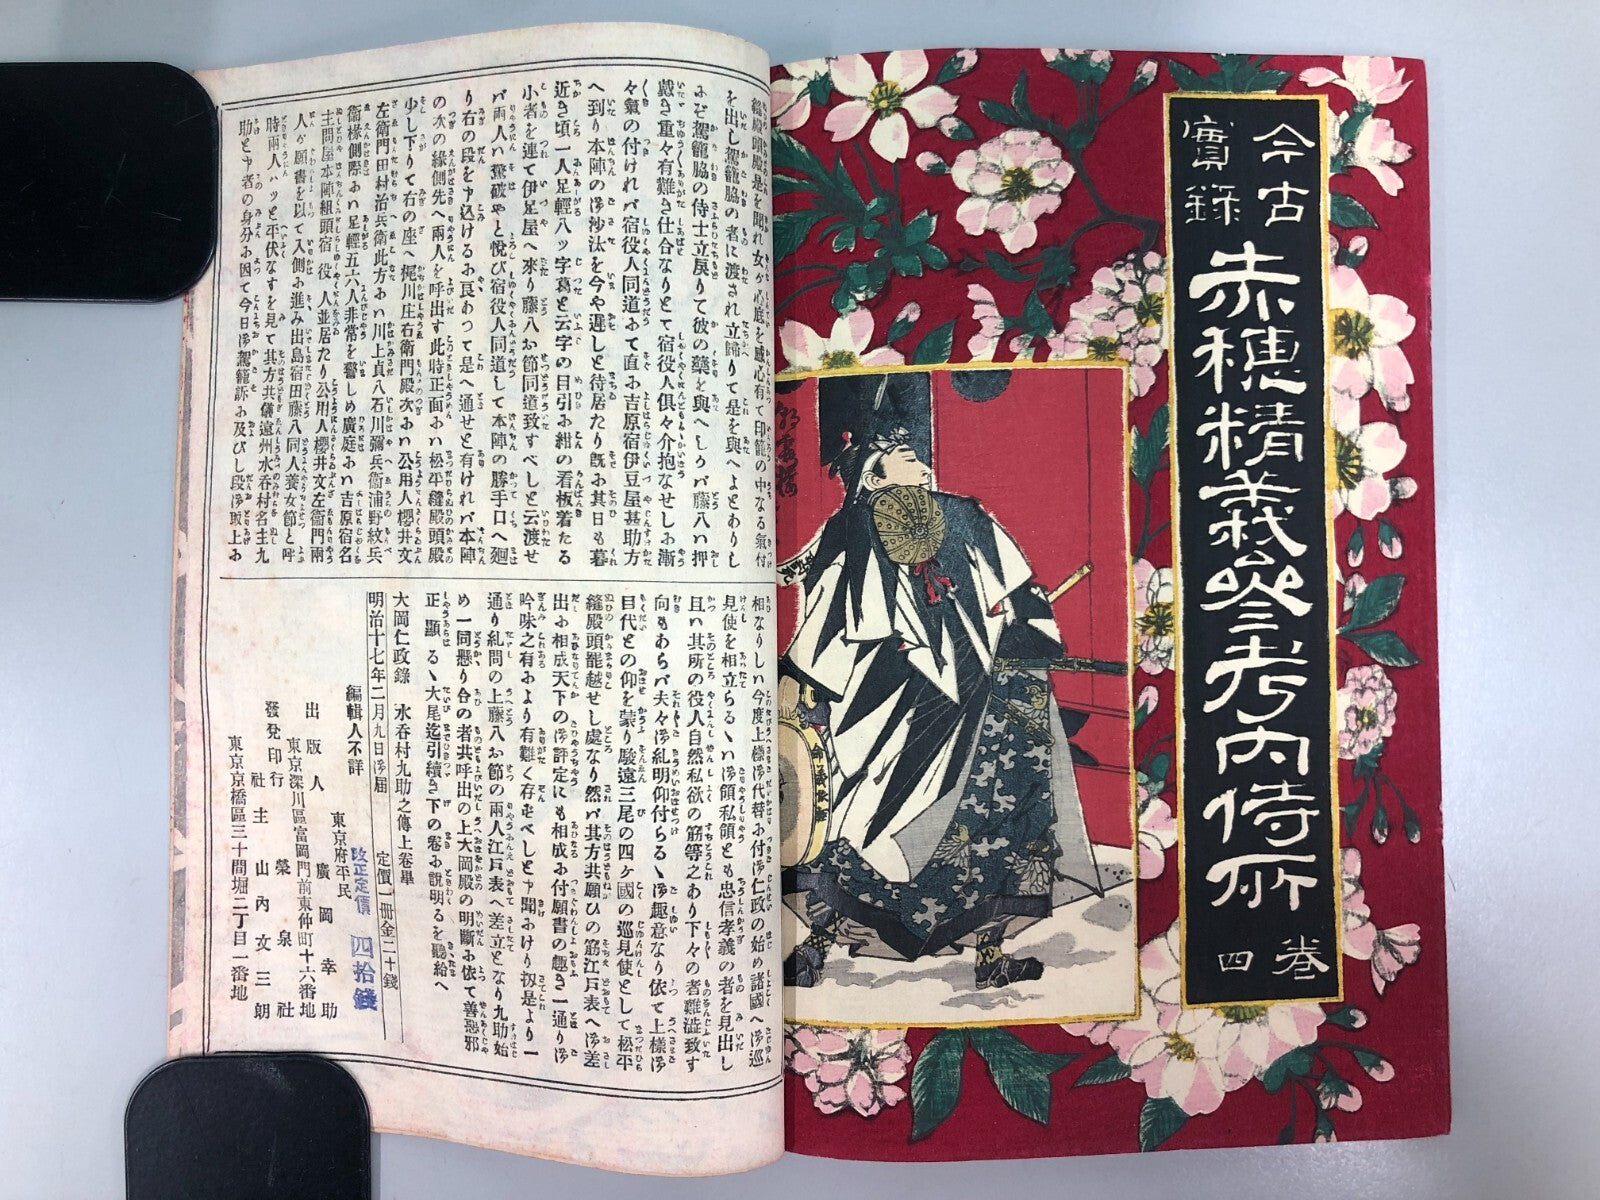 今古
實錄
赤穗精義參考內侍所
巻四
を出し駕籠脇の者に渡され立歸りて是を與へよとありし
戴き重々有難き仕合なりとて宿役人俱々介抱なせしお漸
々氣の付けれバ宿役人同道おて直お吉原宿伊豆屋甚助方
へ到り本陣の御沙汰を今や遲しと待居たり既お其日も暮
近き頃一人足輕八ッ字蔦と云字の目引お紺の看板着たる
小者を連て伊豆屋へ來り藤八お節同道致すべしと云渡せ
バ兩人ハ驚破やと悅び宿役人同道して本陣の勝手口へ廻
り右の段を申込けるお良あつて是へ通せと有けれバ本陣
の次の緣側先へ兩人を呼出す此時正面おハ松平縫殿頭殿
少し下りて右の座へ梶川庄右衞門殿次おハ公用人櫻井文
左衞門田村治兵衞此方おハ川上貞八石川彌兵衞浦野紋兵
衞椽側際おハ足輕五六人非常を警しめ廣庭おハ吉原宿名
主問屋本陣組頭宿役人並居たり公用人櫻井文左衞門兩
人が願書を以て入側お進み出島宿田藤八同人養女節と呼
時兩人ハッと平伏なすを見て其方共儀遠州水呑村名主九
助と申者の身分お因て今日御駕籠訴お及びし段御取上お
相なりしハ今度上樣御代替お付御仁政の始め諸國へ御巡
見使を相立らるゝハ御領私領とも忠信孝義の者を見出し
且ハ其所の役人自然私欲の筋等之あり下々の者難澁致す
向もあらバ夫々御糺明仰付らるゝ御趣意なり依て上樣御
目代との仰を蒙り駿遠三尾の四ヶ國の巡見使として松平
縫殿頭罷越せし處なり然バ其方共願ひの筋江戸表へ御差
出お相成天下の御評定にも相成お付願書の趣き一通り御
吟味之有より有難く存ずべしと申聞おけり扨是より一
通り糺問の上藤八お節の兩人江戸表へ差立となり九助始
め一同懸り合の者共呼出の上大岡殿の明斷お依て善惡邪
正顯るゝ大尾迄引續き下の卷お說明るを聽給へ
大岡仁政錄 水呑村九助之傳上卷畢
明治十七年二月九日御届 定價一冊金二十錢
改正定價 四拾錢
編輯人不詳
東京府平民
出版人 廣岡幸助
東京深川區富岡門前東仲町十六番地
發兌印行 榮泉社
社主 山內文三朗
東京京橋區三十間堀二丁目一番地